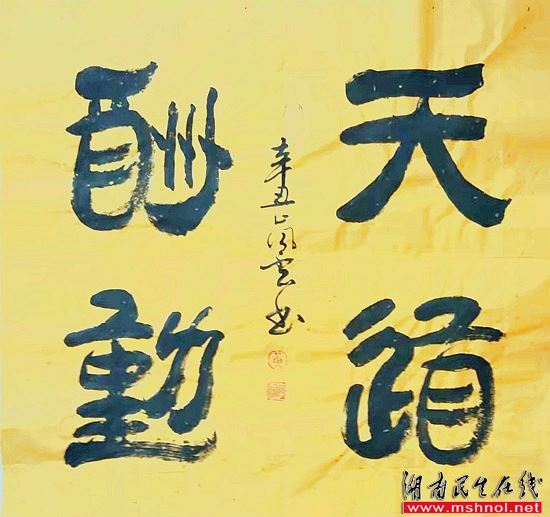 天道
酬動
辛丑風雲书
湖南民生在线
www.mshnol.net